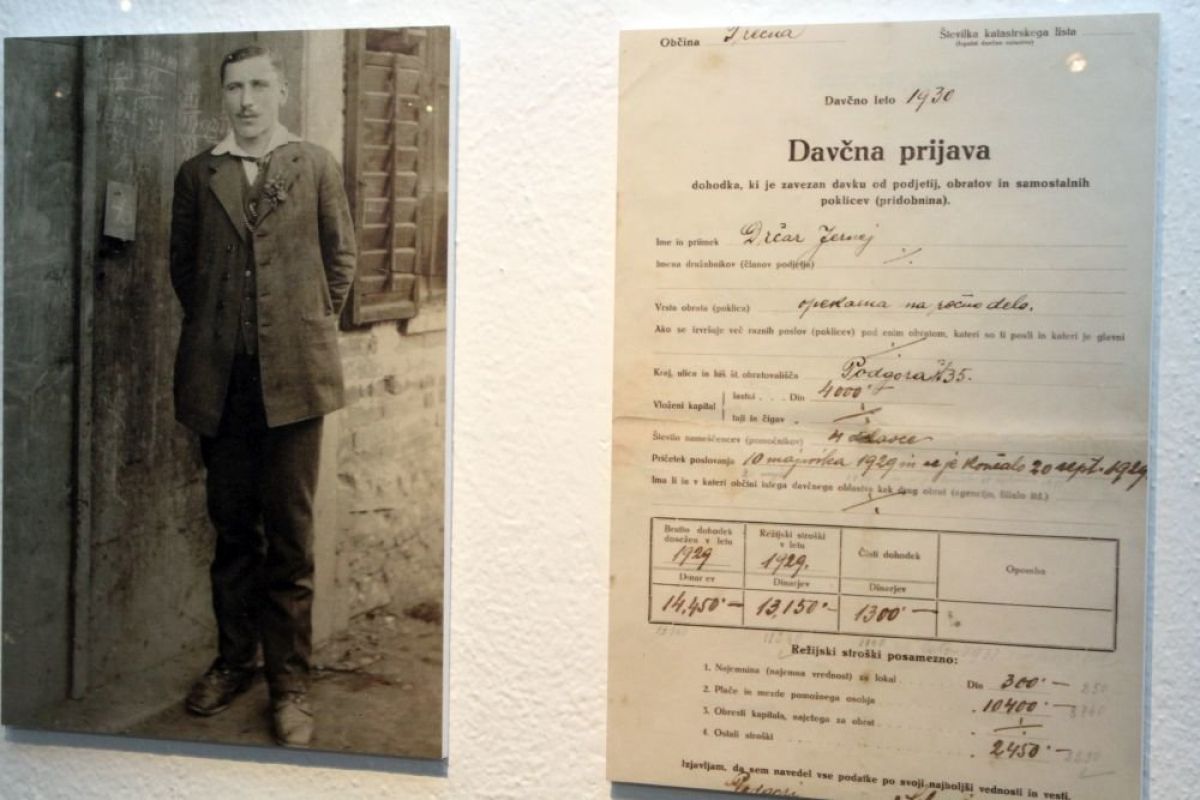 Občina Prečna
Številka katastrskega lista
Davčno leto 1930
Davčna prijava
dohodka, ki je zavezan davku od podjetij, obratov in samostalnih
poklicev (pridobnina).
Ime in priimek Drčar Jernej
Imena družabnikov (članov podjetja) ·/.
Vrsta obrata (poklica) opekarna na ročno delo.
Ako se izvršuje več raznih poslov (poklicev) pod enim obratom, kateri so ti posli in kateri je glavni
Kraj, ulica in hiš. št. obratovališča Podgora št. 35.
Vloženi kapital
lastni . . . Din 4000·-
tuji in čigav . ·/.
Število nameščencev (pomočnikov) 4 delavce
Pričetek poslovanja 10 majnika 1929 in se je končalo 20 sept. 1929
Ima li in v kateri občini istega davčnega oblastva kak drug obrat (agencijo, filialo itd.)
·/.
Bruto dohodek dosežen v letu 1929
Režijski stroški v letu 1929.
Čisti dohodek
Opomba
Dinarjev
Dinarjev
Dinarjev
14,450·—
13,150·—
1300·—
Režijski stroški posamezno:
1. Najemnina (najemna vrednost) za lokal Din 300·— 250
2. Plače in mezde pomožnega osobja 10400·—
3. Obresti kapitala, najetega za obrat ·/.
4. Ostali stroški 2450·—
Izjavljam, da sem navedel vse podatke po svoji najboljši vednosti in vesti.